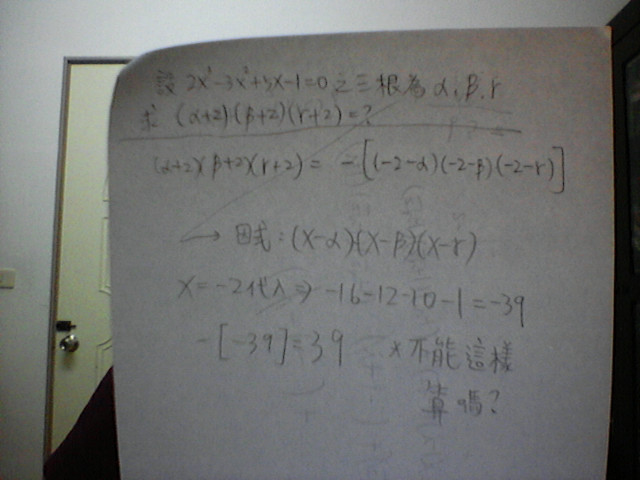 設 2x³-3x²+5x-1=0 之三根為 α,β,r
求 (α+2)(β+2)(r+2)=?
(α+2)(β+2)(r+2) = -[(-2-α)(-2-β)(-2-r)]
→ 因式:(x-α)(x-β)(x-r)
x=-2代入⇒ -16-12-10-1=-39
-[-39]=39 *不能這樣
算嗎?